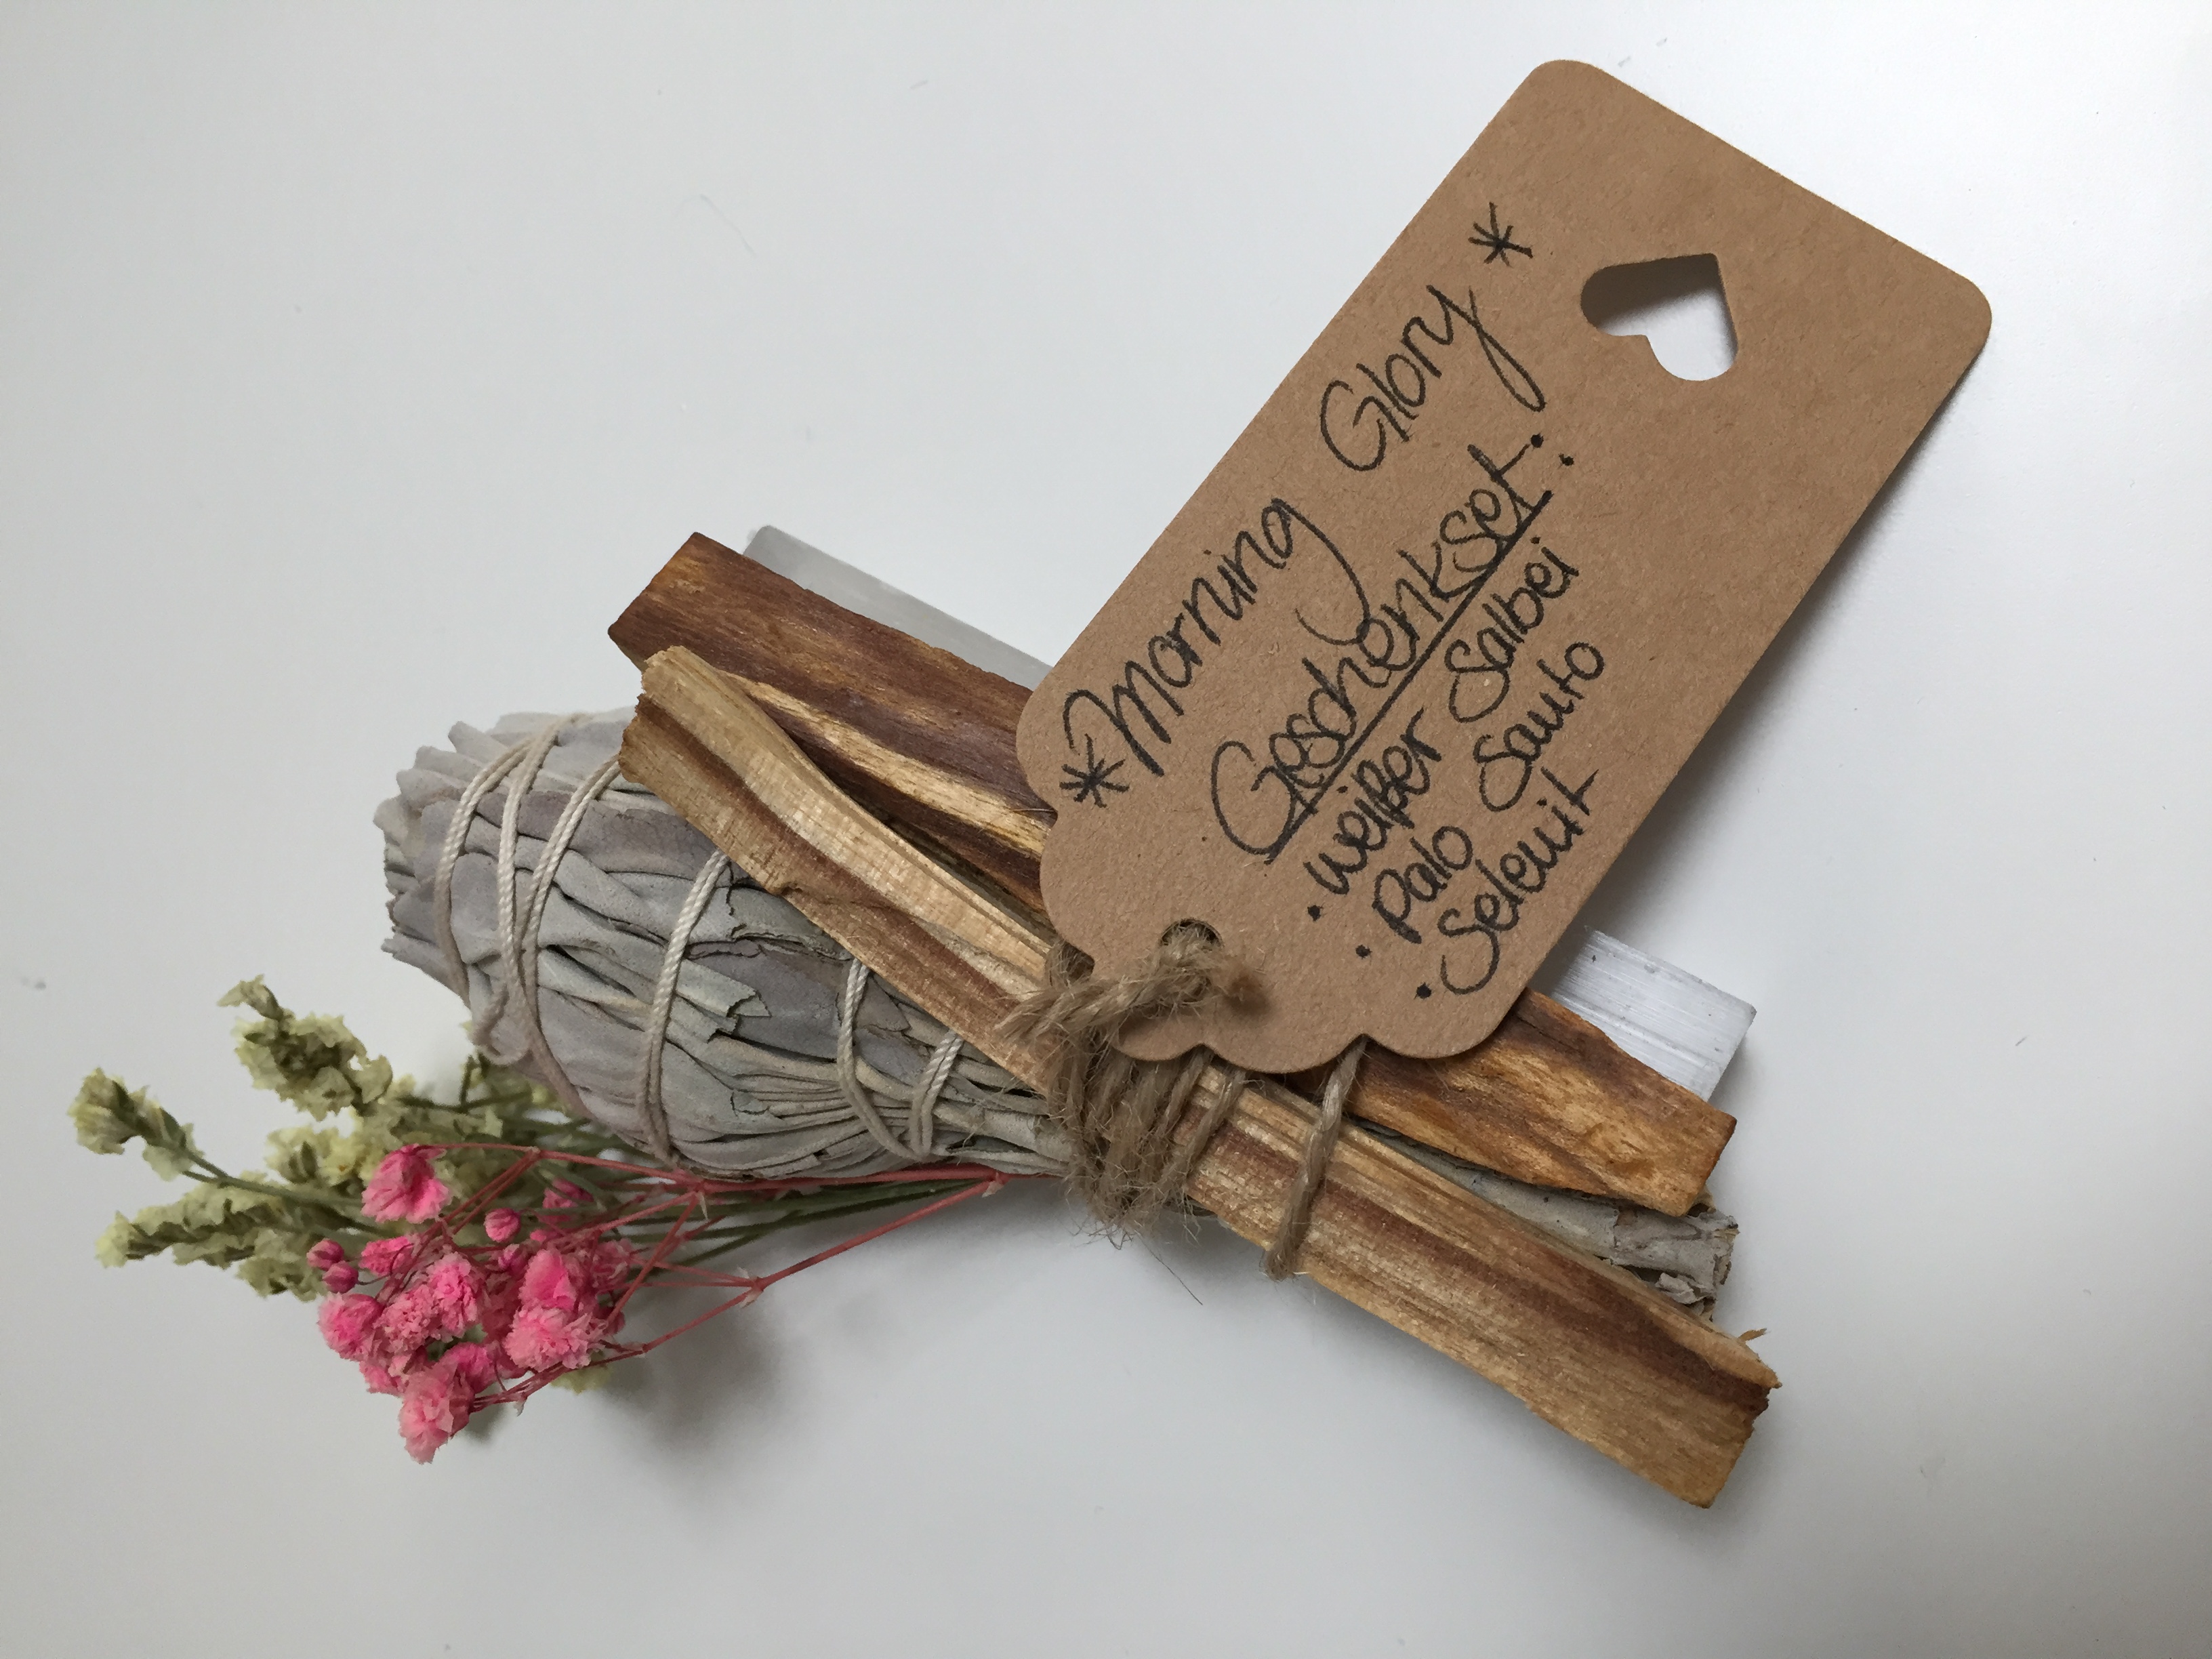 *Morning Glory*
Geschenkset:
• weißer Salbei
• Palo Santo
• Selenit